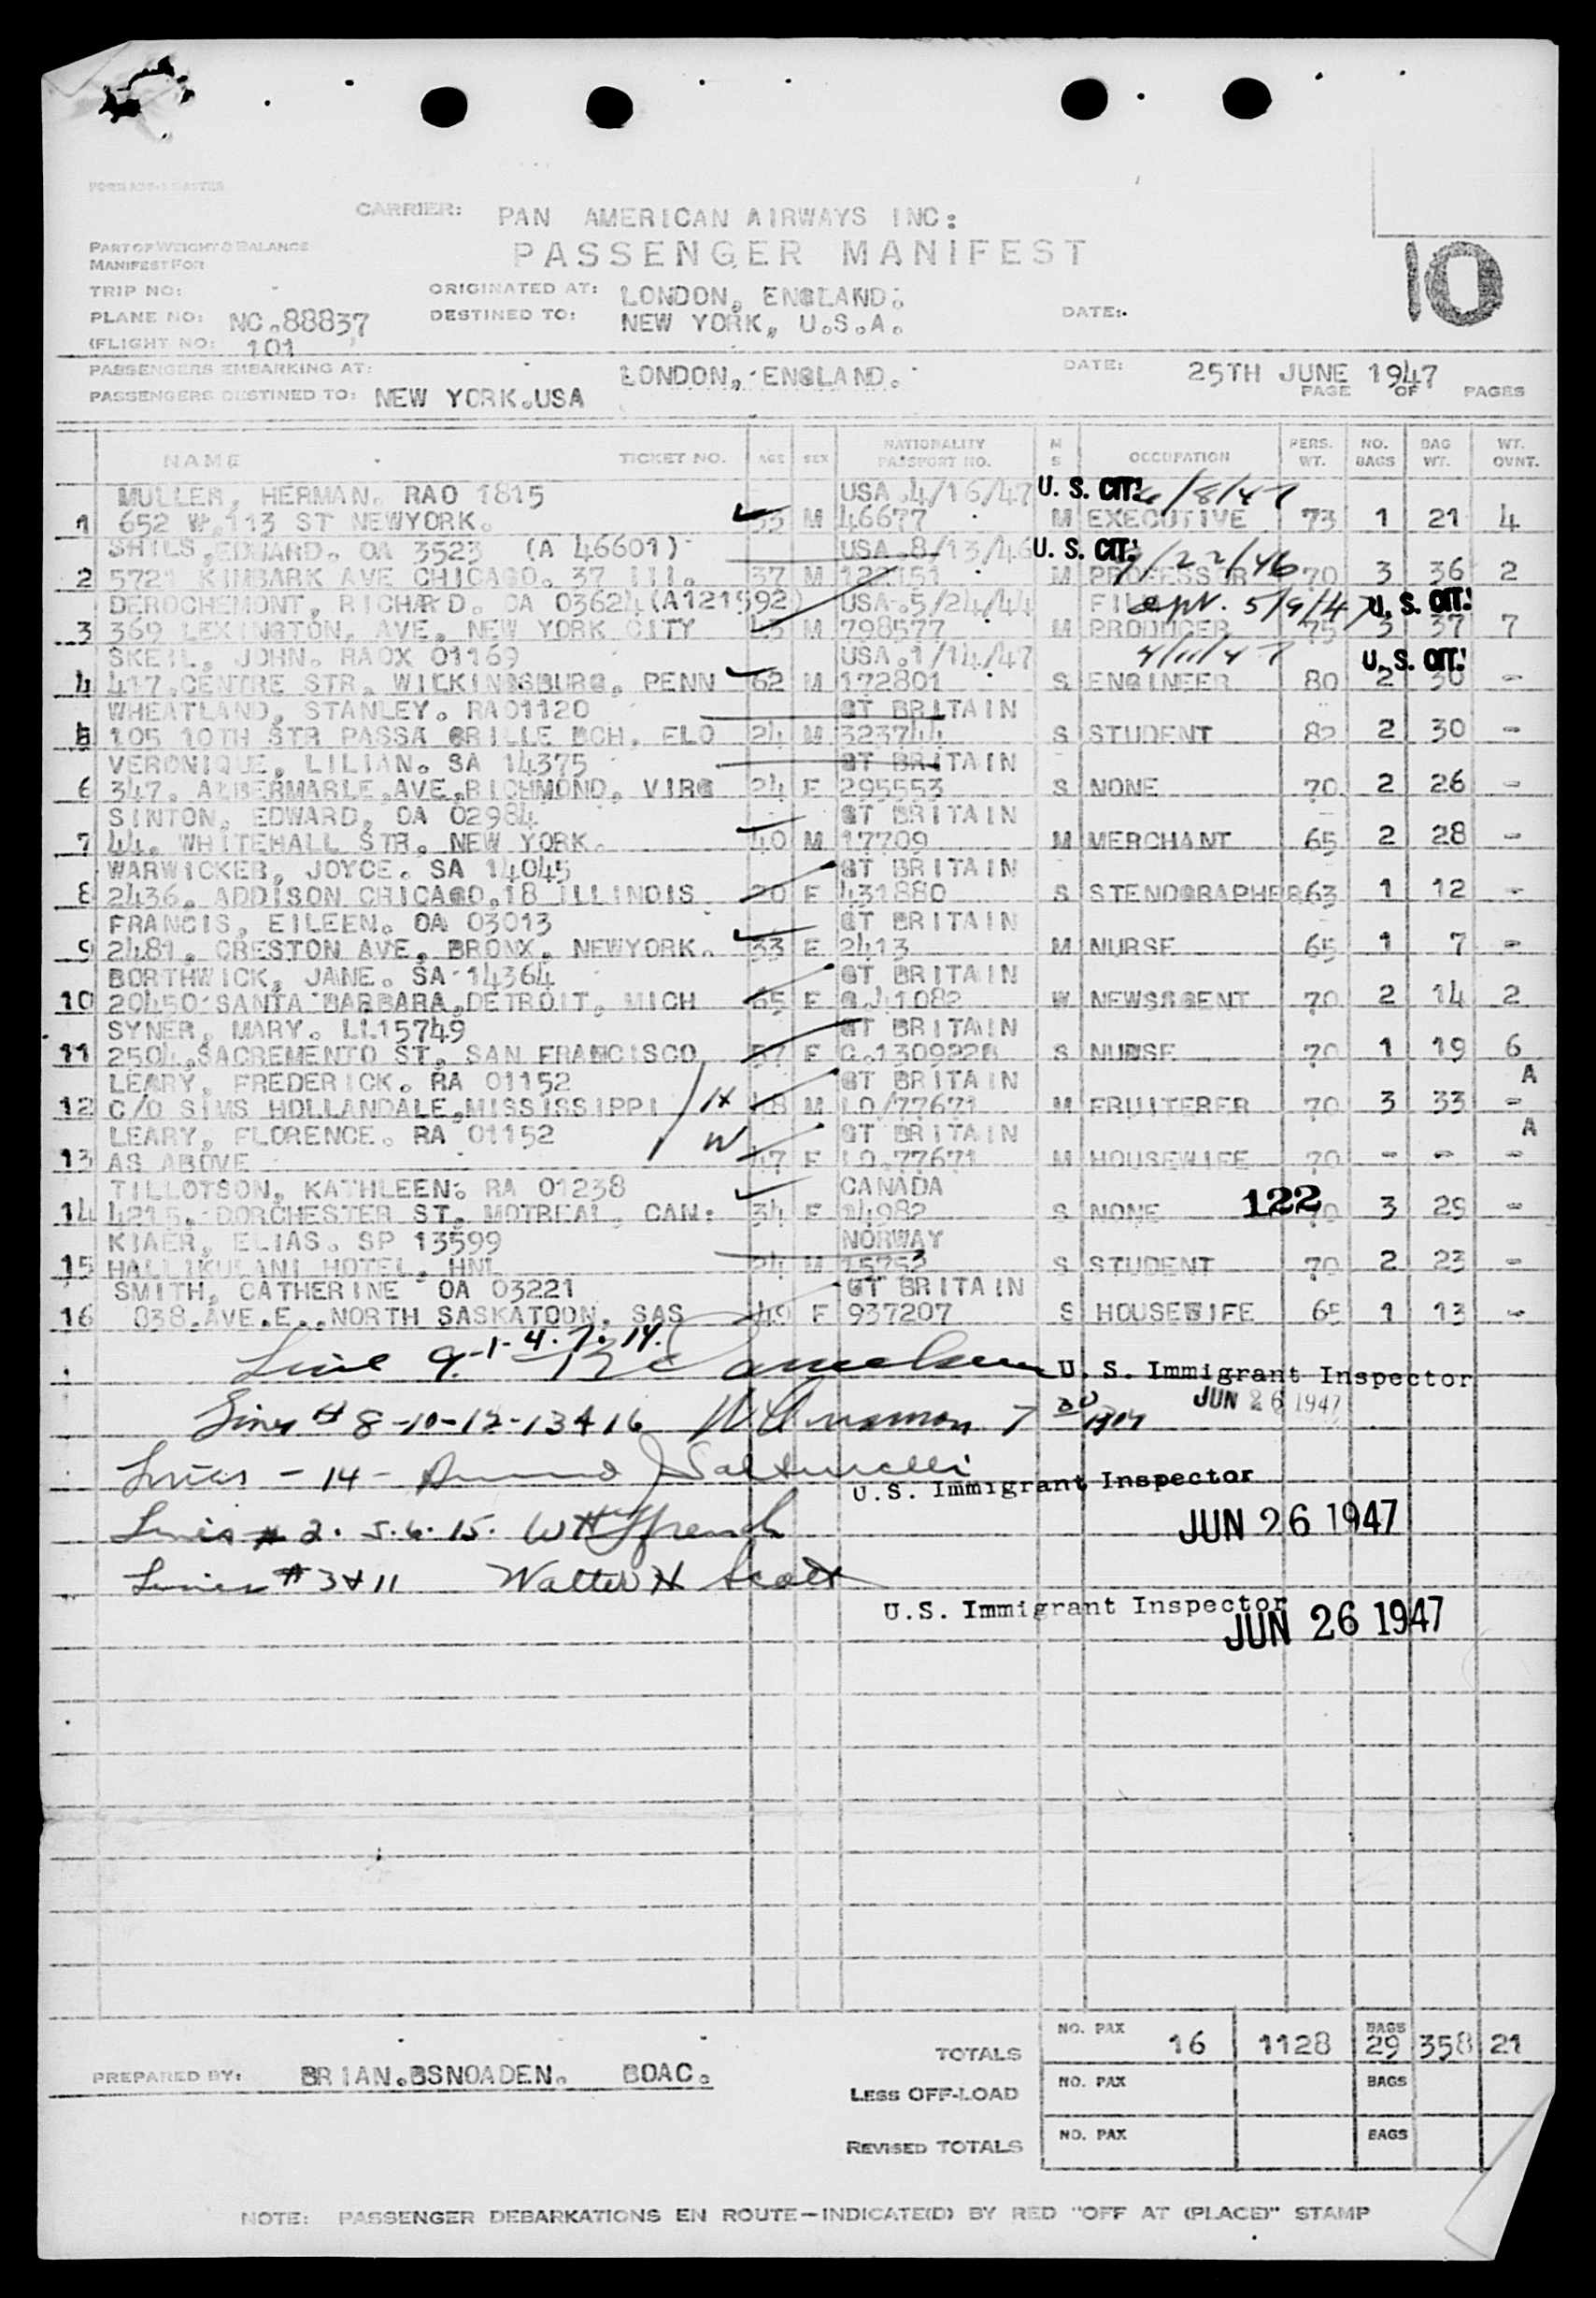 CARRIER: PAN AMERICAN AIRWAYS INC:
PASSENGER MANIFEST
10
PART OF WEIGHT & BALANCE
MANIFEST FOR
TRIP NO:
ORIGINATED AT: LONDON, ENGLAND.
PLANE NO: NC.88837
DESTINED TO: NEW YORK, U.S.A.
DATE:
(FLIGHT NO: 101
PASSENGERS EMBARKING AT: LONDON, ENGLAND. DATE: 25TH JUNE 1947
PASSENGERS DESTINED TO: NEW YORK.USA PAGE OF PAGES
NAME TICKET NO. AGE SEX NATIONALITY PASSPORT NO. M S OCCUPATION PERS. WT. NO. BAGS BAG WT. WT. OVNT.
MULLER, HERMAN. RAO 1815 USA.4/16/47 U. S. CIT. 6/8/47
1 652 W.113 ST NEWYORK. M 46677 M EXECUTIVE 73 1 21 4
SHILS,EDWARD. OA 3523 (A 46601) USA.8/13/46 U. S. CIT. /22/46
2 5721 KIMBARK AVE CHICAGO. 37 ILL. 37 M 122151 M PROFESSOR 70 3 36 2
DEROCHEMONT, RICHARD. OA 03624(A121592) USA.5/24/44 5/9/47 U. S. CIT.
3 369 LEXINGTON, AVE. NEW YORK CITY M 798577 M PRODUCER 75 3 37 7
SKEIL, JOHN. RAOX 01169 USA.1/14/47 4/11/47 U. S. CIT.
4 417.CENTRE STR. WILKINGSBURG, PENN 62 M 172801 S ENGINEER 80 2 30 -
WHEATLAND, STANLEY. RA01120 GT BRITAIN
5 105 10TH STR PASSA GRILLE BCH. ELO 24 M 323744 S STUDENT 82 2 30 -
VERONIQUE, LILIAN. SA 14375 GT BRITAIN
6 347. ALBERMARLE.AVE.RICHMOND, VIRG 24 F 295553 S NONE 70 2 26 -
SINTON, EDWARD, OA 02984 GT BRITAIN
7 44. WHITEHALL STR. NEW YORK. 40 M 17709 M MERCHANT 65 2 28 -
WARWICKER, JOYCE. SA 14045 GT BRITAIN
8 2436. ADDISON CHICAGO.18 ILLINOIS 20 F 431880 S STENOGRAPHER 63 1 12 -
FRANCIS, EILEEN. OA 03013 GT BRITAIN
9 2481. CRESTON AVE. BRONX, NEWYORK. 33 F 2413 M NURSE 65 1 7 -
BORTHWICK, JANE. SA 14364 GT BRITAIN
10 20450 SANTA BARBARA,DETROIT, MICH 65 F 41082 W NEWSAGENT 70 2 14 2
SYNER, MARY. LL15749 GT BRITAIN
11 2504.SACREMENTO ST. SAN FRANCISCO 57 F C.130922B S NURSE 70 1 19 6
LEARY, FREDERICK. RA 01152 GT BRITAIN A
12 C/O SIMS HOLLANDALE,MISSISSIPPI H 48 M LO/77671 M FRUITERER 70 3 33 -
LEARY, FLORENCE. RA 01152 W GT BRITAIN A
13 AS ABOVE 47 F LO.77671 M HOUSEWIFE 70 - - -
TILLOTSON, KATHLEEN: RA 01238 CANADA
14 4215. DORCHESTER ST. MOTREAL, CAN: 34 F 14982 S NONE 122 70 3 29 -
KIAER, ELIAS. SP 13599 NORWAY
15 HALLIKULANI HOTEL, HNL 24 M 15752 S STUDENT 70 2 23 -
SMITH, CATHERINE OA 03221 GT BRITAIN
16 838.AVE.E..NORTH SASKATOON. SAS 49 F 937207 S HOUSEWIFE 65 1 13 -
Line 9-1-4.7.14. U. S. Immigrant Inspector
JUN 26 1947
Lines # 8-10-12-13 & 16
Lines - 14 -
U.S. Immigrant Inspector
Lines # 2. 5. 6. 15. W H French JUN 26 1947
Lines # 3 & 11 Walter H Scott
U.S. Immigrant Inspector JUN 26 1947
TOTALS NO. PAX 16 1128 BAGS 29 358 21
PREPARED BY: BRIAN.BSNOADEN. BOAC.
LESS OFF-LOAD NO. PAX BAGS
REVISED TOTALS NO. PAX BAGS
NOTE: PASSENGER DEBARKATIONS EN ROUTE—INDICATE(D) BY RED "OFF AT (PLACE)" STAMP